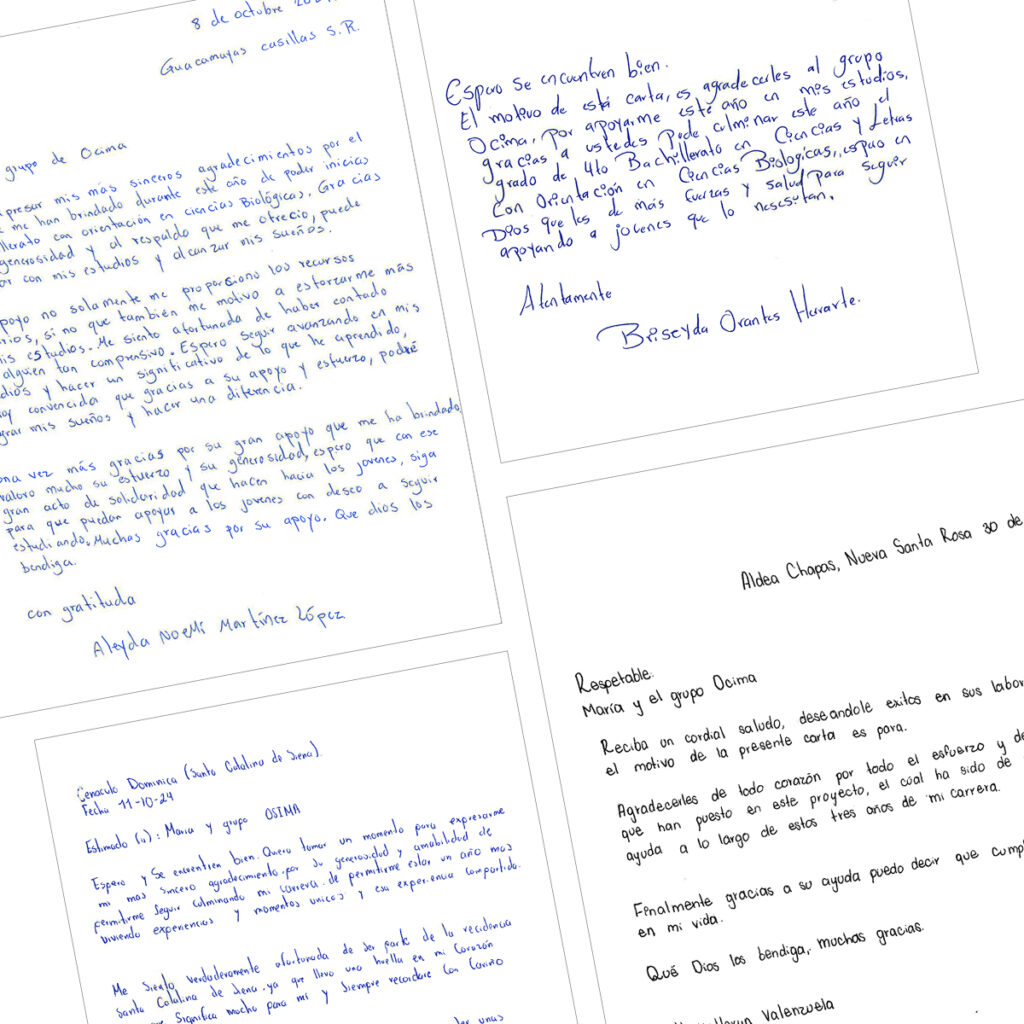 8 de octubre
Guacamayas casillas S.R.
grupo de Ocima
presar mis más sinceros agradecimientos por el
me han brindado durante este año de poder inicias
llerato con orientación en ciencias Biológicas, Gracias
generosidad y al respaldo que me ofrecio, puede
ar con mis estudios y alcanzar mis sueños.
poyo no solamente me proporciono los recursos
rios, si no que también me motivo a esforzarme más
is estudios. Me siento afortunada de haber contado
alguien tan comprensivo. Espero seguir avanzando en mis
dios y hacer un significativo de lo que he aprendido,
oy convencida que gracias a su apoyo y esfuerzo, podré
grar mis sueños y hacer una diferencia.
ona vez más gracias por su gran apoyo que me ha brindado
valoro mucho su esfuerzo y su generosidad, espero que con ese
gran acto de solidaridad que hacen hacia los jovenes, siga
para que puedan apoyar a los jovenes con deseo a seguir
estudiando. Muchas gracias por su apoyo. Que dios los
bendiga.
con gratituda
Aleyda Noemí Martínez López
Espero se encuentren bien.
El motivo de está carta, es agradecerles al grupo
Ocima, Por apoyarme este año en mis estudios,
gracias a ustedes Pude culminar este año el
grado de 4to Bachillerato en Ciencias y Letras
Con Orientación en Ciencias Biologicas, espero en
Dios que les de más fuerzas y salud Para seguir
apoyando a jovenes que lo nesesitan.
Atentamente
Briseyda Orantes Huvarte.
Cenaculo Dominica (Santa Catalina de Siena).
Fecha 11-10-24
Estimado (a): Maria y grupo OSIMA
Espero y Se encuentren bien. Quiero tomar un momento para expresarme
mi mas sincero agradecimiento por su generosidad y amabilidad de
permitirme seguir culminando mi carrera de permitirme estar un año mas
viviendo experiencias y momentos unicos y esa experiencia compartida.
Me Siento verdaderamente afortunada de ser parte de la recidencia
Santa Catalina de Siena. ya que llevo una huella en mi Corazón
Significa mucho para mí y Siempre recordare Con Cariño
unas
Aldea Chapas, Nueva Santa Rosa 30 de
Respetable:
María y el grupo Ocima
Reciba un cordial saludo, deseandole exitos en sus labor
el motivo de la presente carta es para.
Agradecerles de todo corazón por todo el esfuerzo y de
que han puesto en este proyecto, el cual ha sido de
ayuda a lo largo de estos tres años de mi carrera.
Finalmente gracias a su ayuda puedo decir que cumpl
en mi vida.
Qué Dios los bendiga, muchas gracias.
Valenzuela